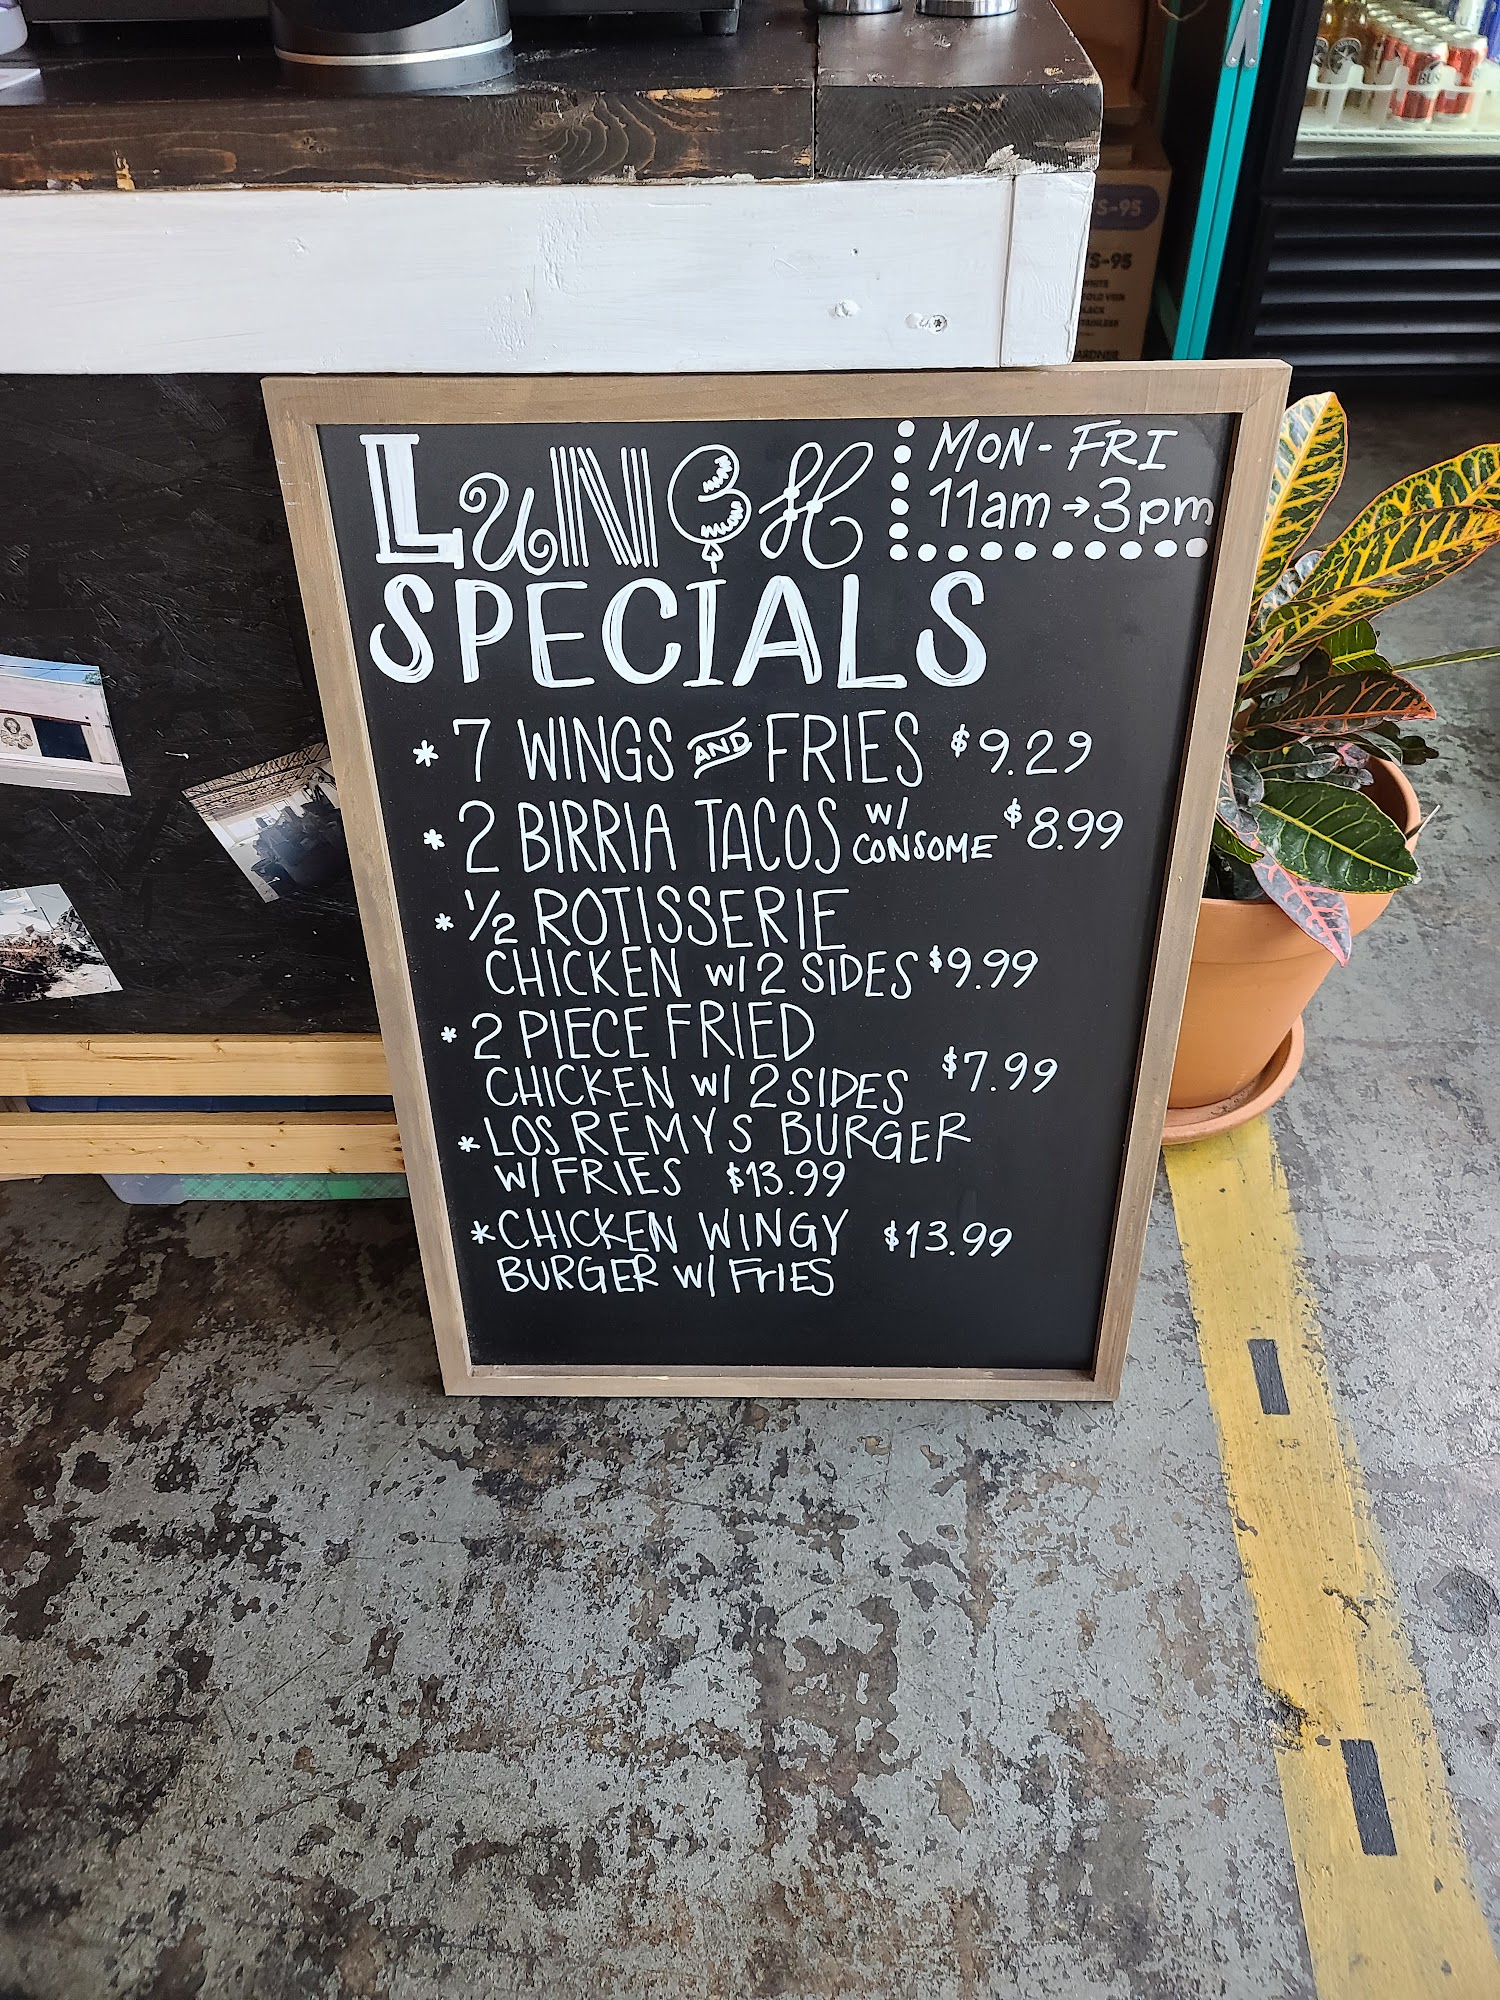 LUNCH
MON - FRI
11am → 3pm
SPECIALS
* 7 WINGS AND FRIES $9.29
* 2 BIRRIA TACOS W/ CONSOME $8.99
* 1/2 ROTISSERIE
CHICKEN W/ 2 SIDES $9.99
* 2 PIECE FRIED
CHICKEN W/ 2 SIDES $7.99
* LOS REMYS BURGER
W/ FRIES $13.99
* CHICKEN WINGY $13.99
BURGER W/ FrIES
S-95
S-95